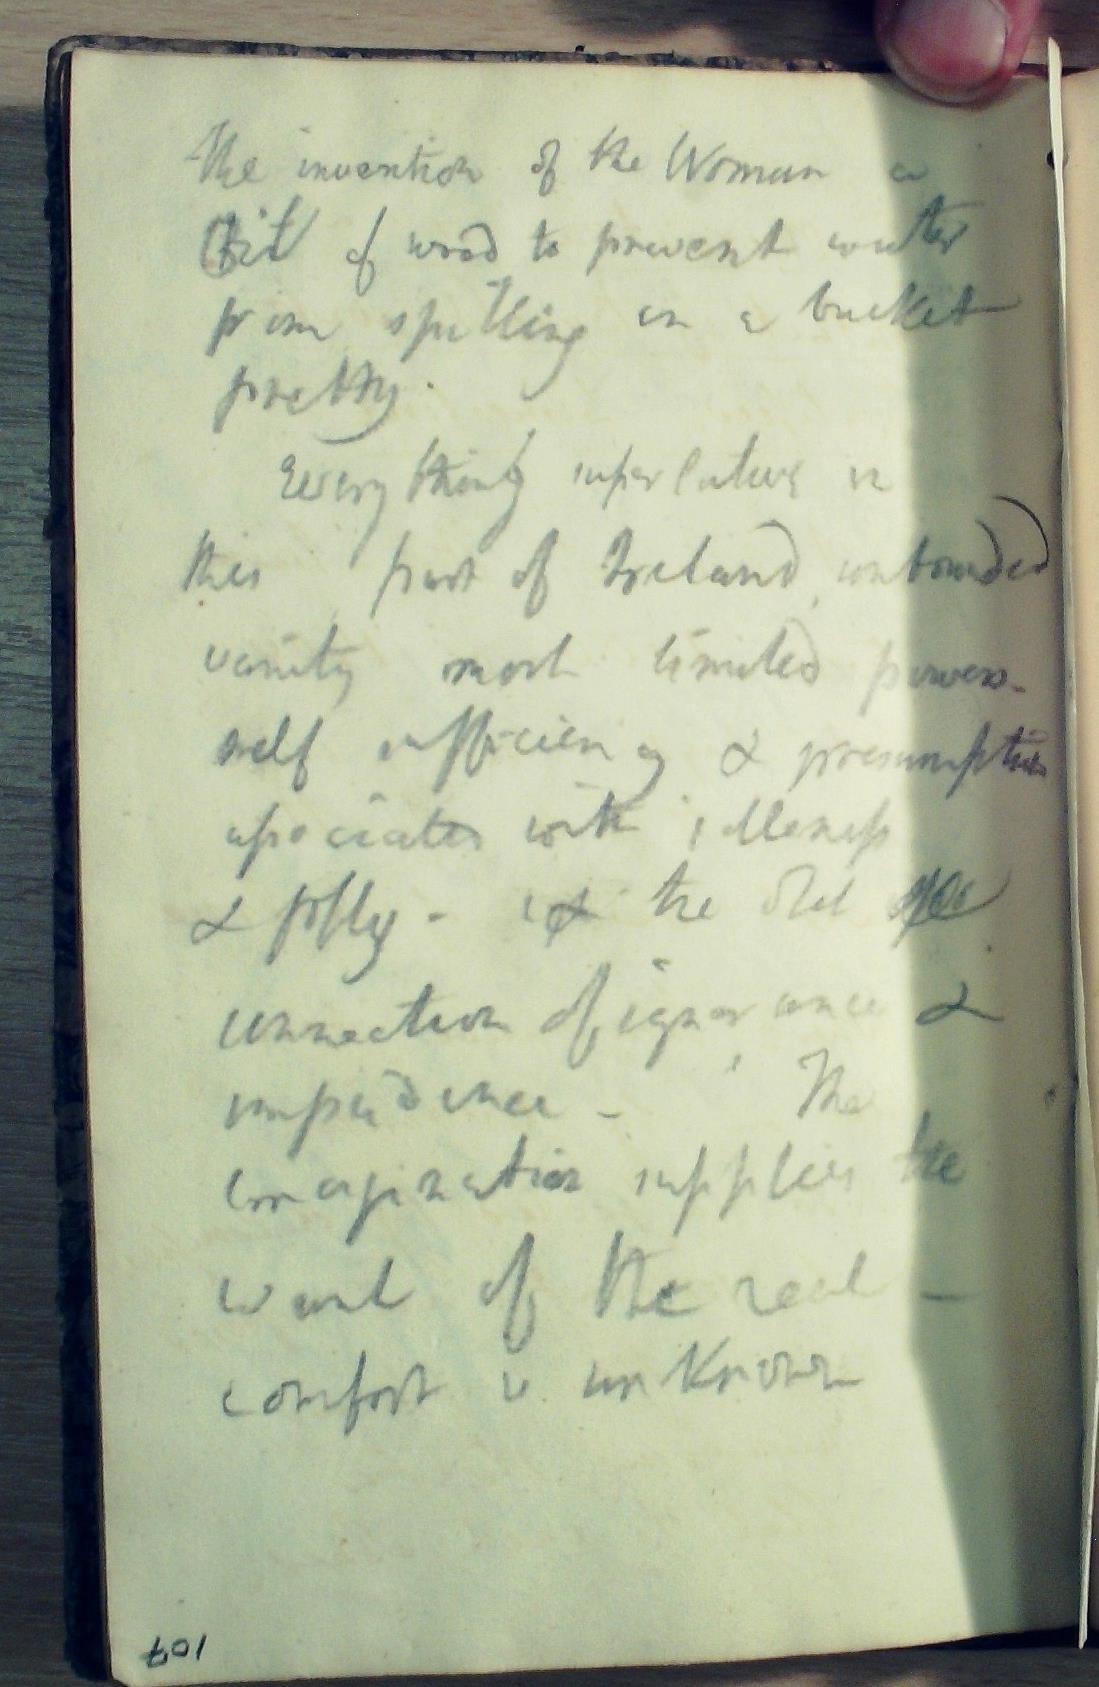 The invention of the Woman a
bit of wood to prevent water
from spilling in a bucket
pretty.
Every thing superlative in
this part of Ireland, unbounded
vanity most limited powers.
self sufficiency & presumption
associated with idleness
& folly - is the old
connection of ignorance &
impudence - The
imagination supplies the
want of the real -
comfort is unknown
107